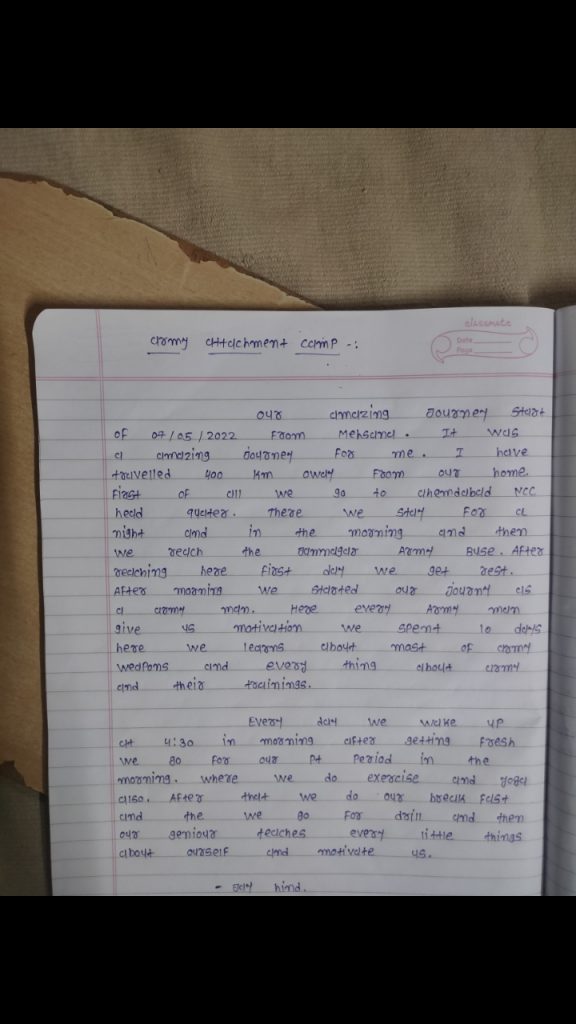 army attachment camp -:
classmate
Date
Page
our amazing Journey start
of 07/05/2022 From Mehsana. It was
a amazing Journey For me. I have
travelled 400 km away From our home.
First of all we go to ahemdabad NCC
head quater. There we stay For a
night and in the morning and then
we reach the Jamnagar Army Buse. After
reaching here First day we get rest.
After morning we started our journy as
a army man. Here every Army man
give us motivation we spent 10 days
here we learns about most of army
weapons and every thing about army
and their trainings.
Every day we wake up
at 4:30 in morning after getting Fresh
we go For our Pt Period in the
morning. where we do exercise and yoga
also. After that we do our break Fast
and the we go For drill and then
our seniour teaches every little things
about ourself and motivate us.
- Jay hind.